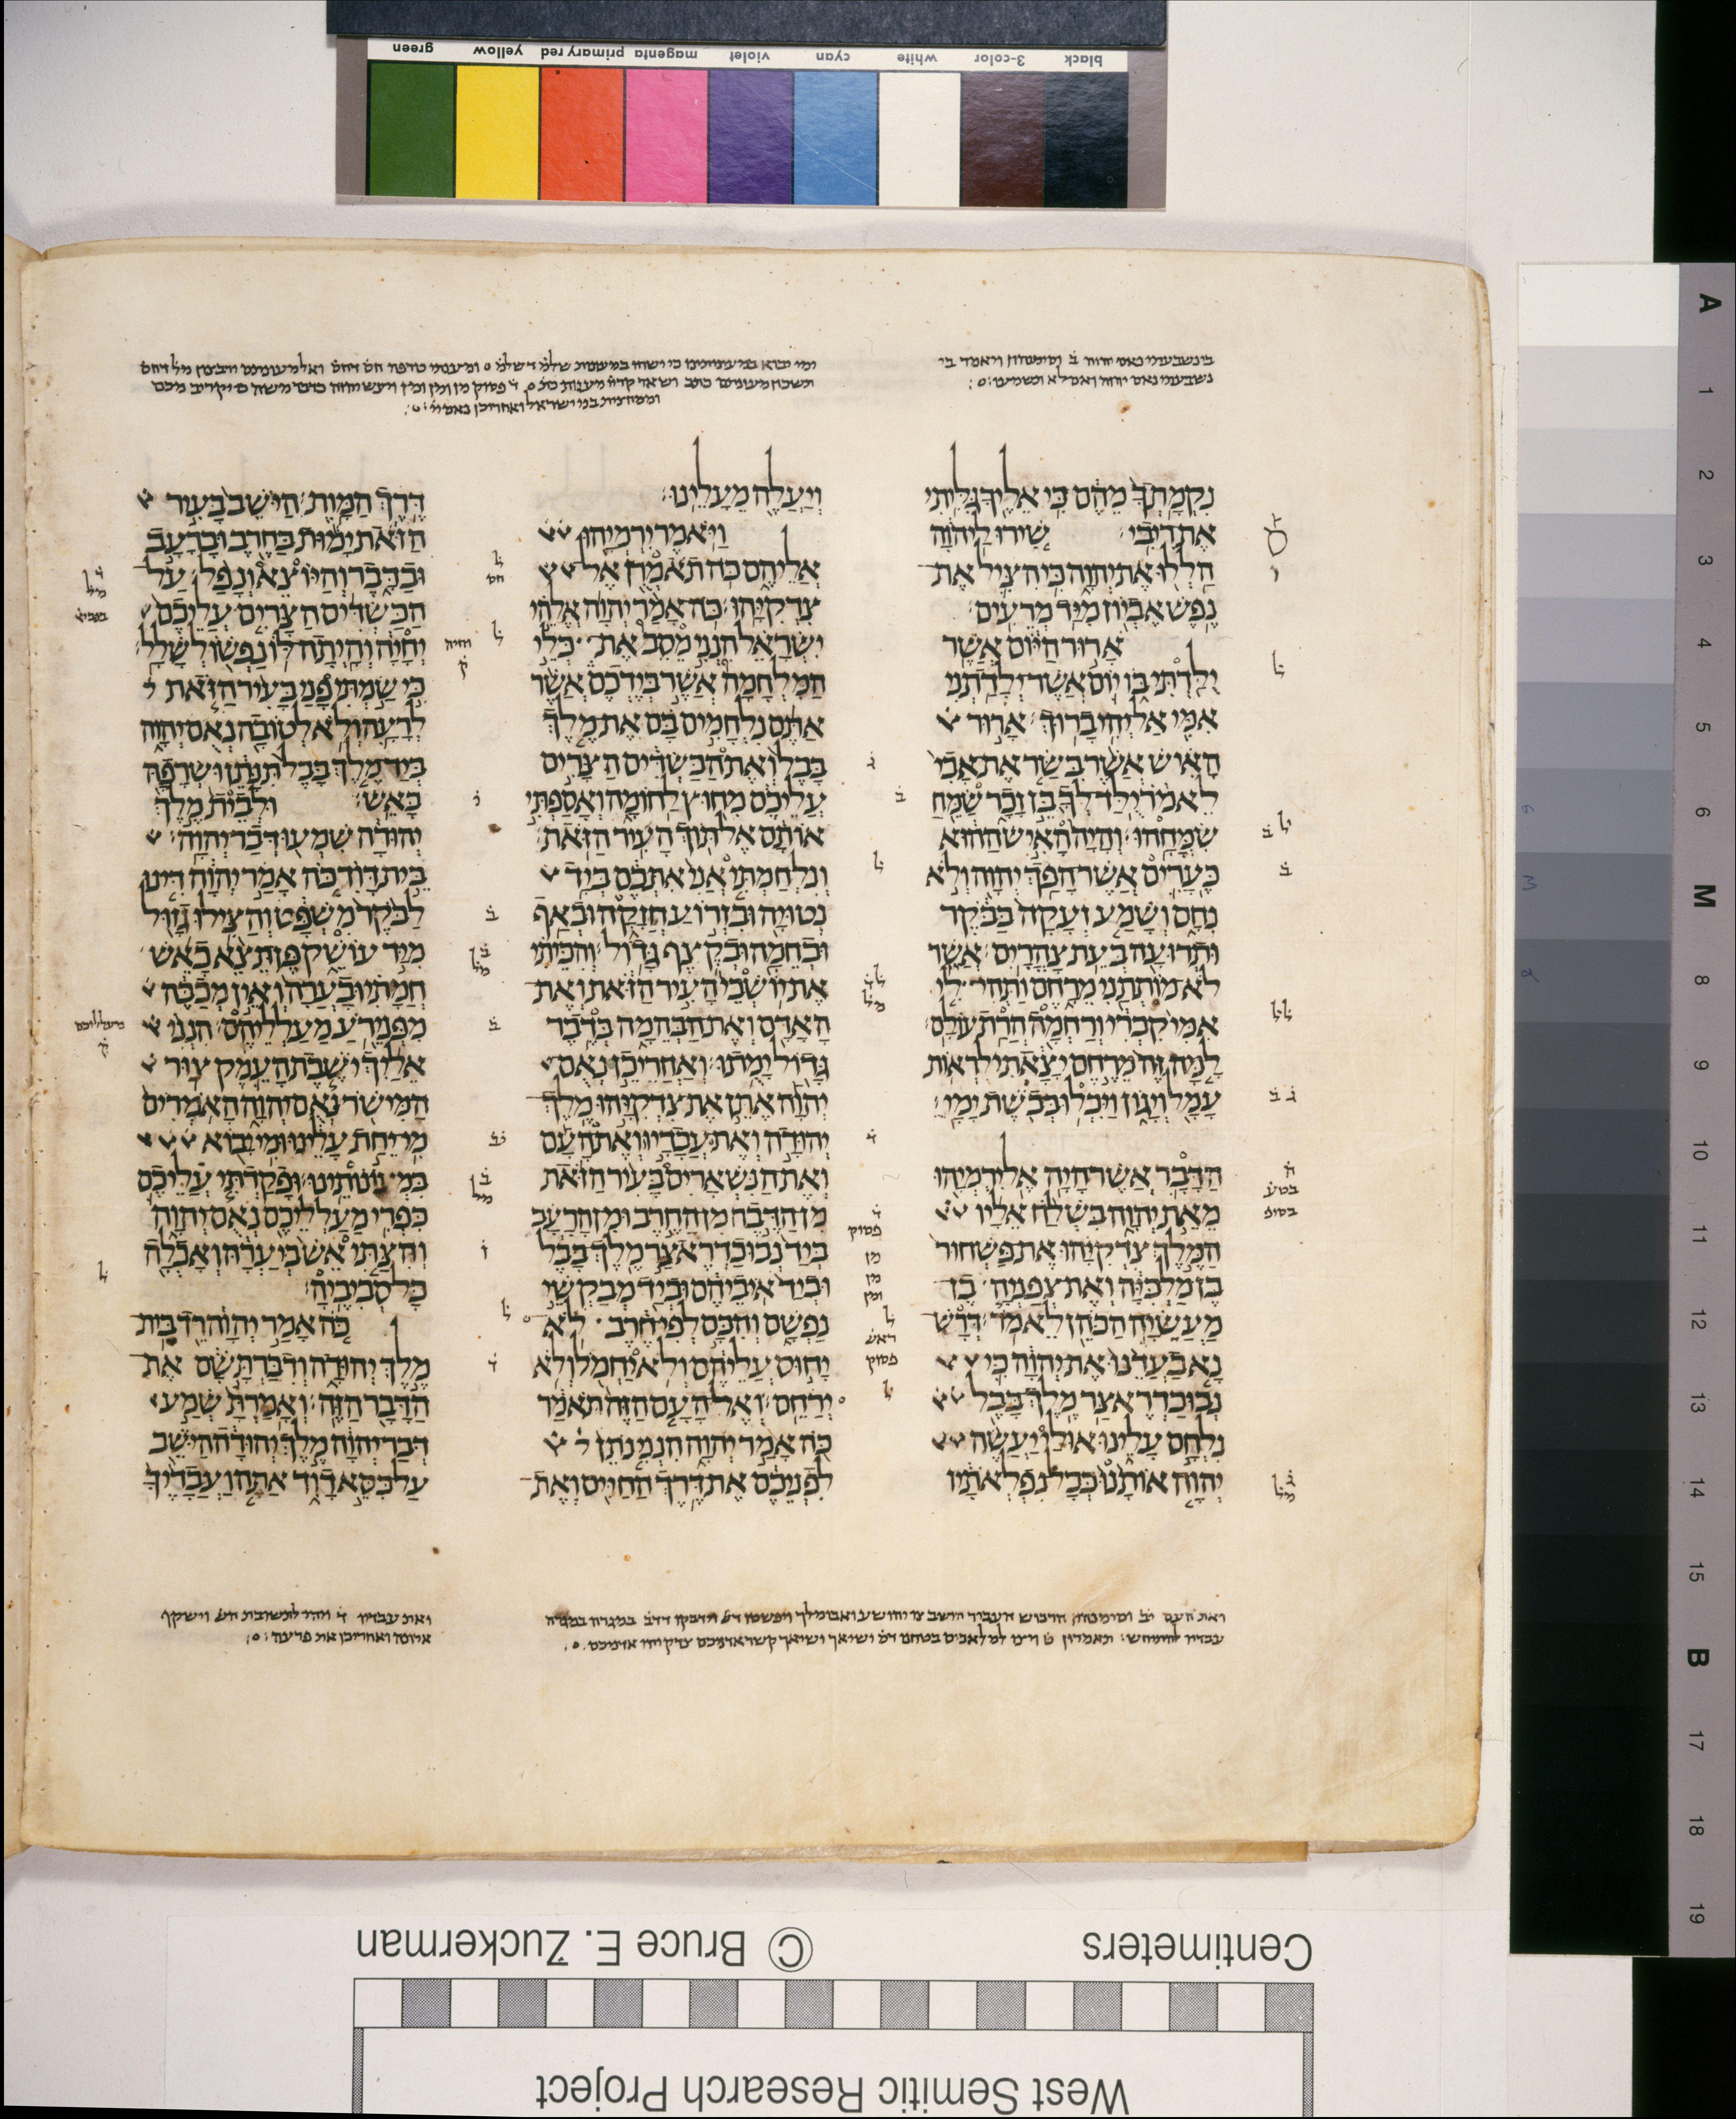 green yellow primary red magenta violet cyan white 3-color black
נקמתך מהם כי אליך גליתי
את ריבי׃ שירו ליהוה
הללו את יהוה כי הציל את
נפש אביון מיד מרעים׃
ארור היום אשר
ילדתי בו יום אשר ילדתני
אמי אל יהי ברוך׃ ארור
האיש אשר בשר את אבי
לאמר ילד לך בן זכר שמח
שמחהו׃ והיה האיש ההוא
כערים אשר הפך יהוה ולא
נחם ושמע זעקה בבקר
ותרועה בעת צהרים׃ אשר
לא מותתני מרחם ותהי לי
אמי קברי ורחמה הרת עולם׃
למה זה מרחם יצאתי לראות
עמל ויגון ויכלו בבשת ימי׃
הדבר אשר היה אל ירמיהו
מאת יהוה בשלח אליו
המלך צדקיהו את פשחור
בן מלכיה ואת צפניה בן
מעשיה הכהן לאמר׃ דרש
נא בעדנו את יהוה כי
נבוכדראצר מלך בבל
נלחם עלינו אולי יעשה
יהוה אותנו ככל נפלאתיו
ויעלה מעלינו׃
ויאמר ירמיהו
אליהם כה תאמרן אל
צדקיהו׃ כה אמר יהוה אלהי
ישראל הנני מסב את כלי
המלחמה אשר בידכם אשר
אתם נלחמים בם את מלך
בבל ואת הכשדים הצרים
עליכם מחוץ לחומה ואספתי
אותם אל תוך העיר הזאת׃
ונלחמתי אני אתכם ביד
נטויה ובזרוע חזקה ובאף
ובחמה ובקצף גדול׃ והכיתי
את יושבי העיר הזאת ואת
האדם ואת הבהמה בדבר
גדול ימתו׃ ואחרי כן נאם
יהוה אתן את צדקיהו מלך
יהודה ואת עבדיו ואת העם
ואת הנשארים בעיר הזאת
מן הדבר מן החרב ומן הרעב
ביד נבוכדראצר מלך בבל
וביד איביהם וביד מבקשי
נפשם והכם לפי חרב לא
יחוס עליהם ולא יחמל ולא
ירחם׃ ואל העם הזה תאמר
כה אמר יהוה הנני נתן
לפניכם את דרך החיים ואת
דרך המות׃ הישב בעיר
הזאת ימות בחרב וברעב
ובדבר והיוצא ונפל על
הכשדים הצרים עליכם
יחיה והיתה לו נפשו לשלל׃
כי שמתי פני בעיר הזאת
לרעה ולא לטובה נאם יהוה
ביד מלך בבל תנתן ושרפה
באש׃ ולבית מלך
יהודה שמעו דבר יהוה׃
בית דוד כה אמר יהוה דינו
לבקר משפט והצילו גזול
מיד עושק פן תצא כאש
חמתי ובערה ואין מכבה
מפני רע מעלליהם׃ הנני
אליך ישבת העמק צור
המישר נאם יהוה האמרים
מי יחת עלינו ומי יבוא
במעונותינו׃ ופקדתי עליכם
כפרי מעלליכם נאם יהוה
והצתי אש ביערה ואכלה
כל סביביה׃
כה אמר יהוה רד בית
מלך יהודה ודברת שם את
הדבר הזה׃ ואמרת שמע
דבר יהוה מלך יהודה הישב
על כסא דוד אתה ועבדיך
A 1 2 3 4 5 6 M 8 9 10 11 12 13 14 15 B 17 18 19
Centimeters © Bruce E. Zuckerman
West Semitic Research Project